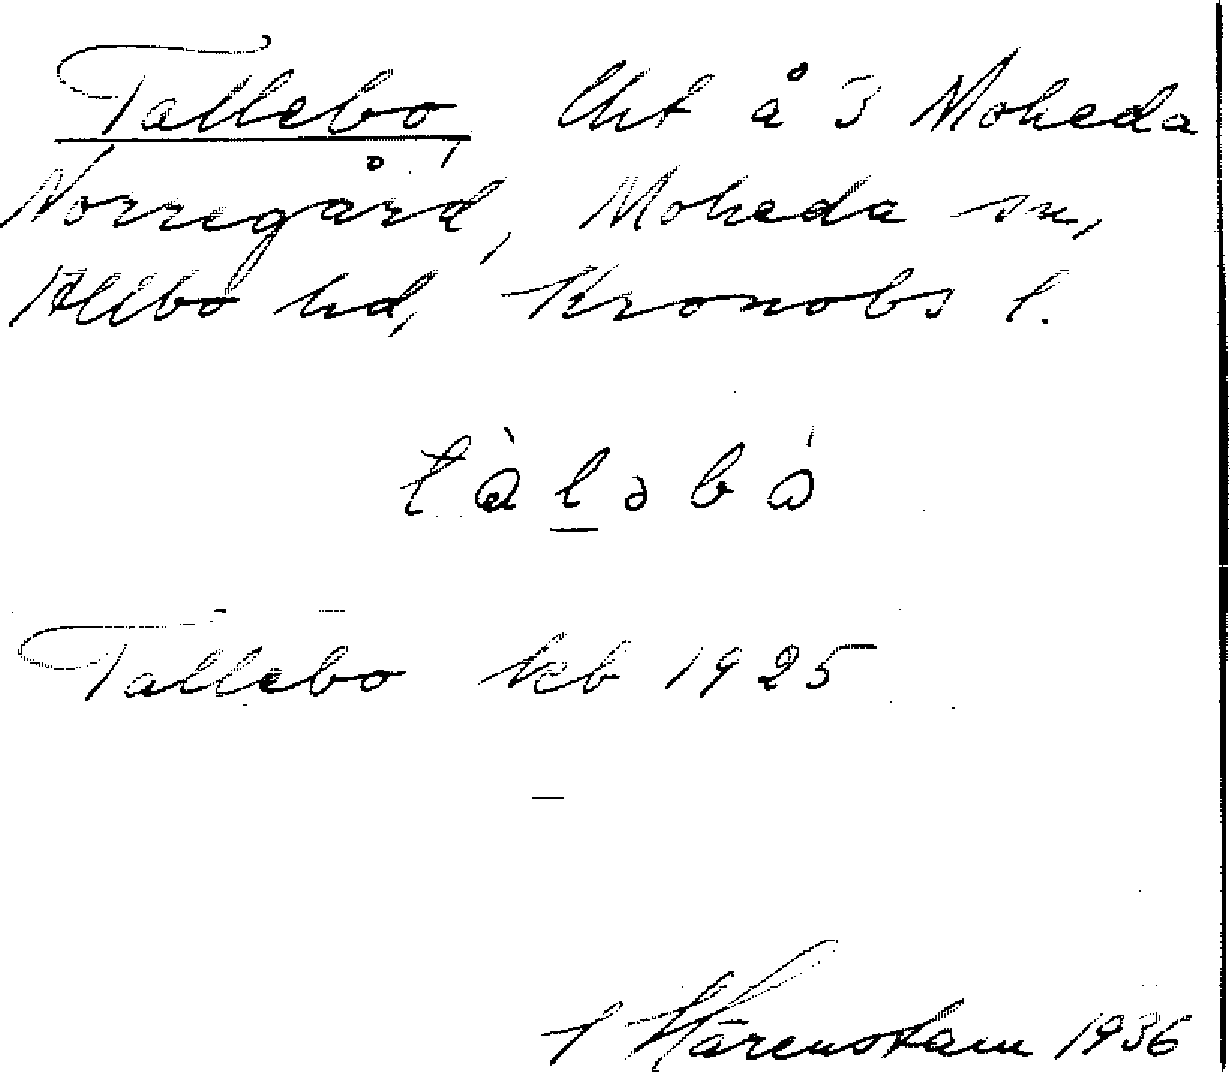 Tallebo, lht å 3 Moheda
Norregård, Moheda sn,
Allbo hd, Kronobs l.
tàləbó
Tallebo kb 1925
Härenstam 1936